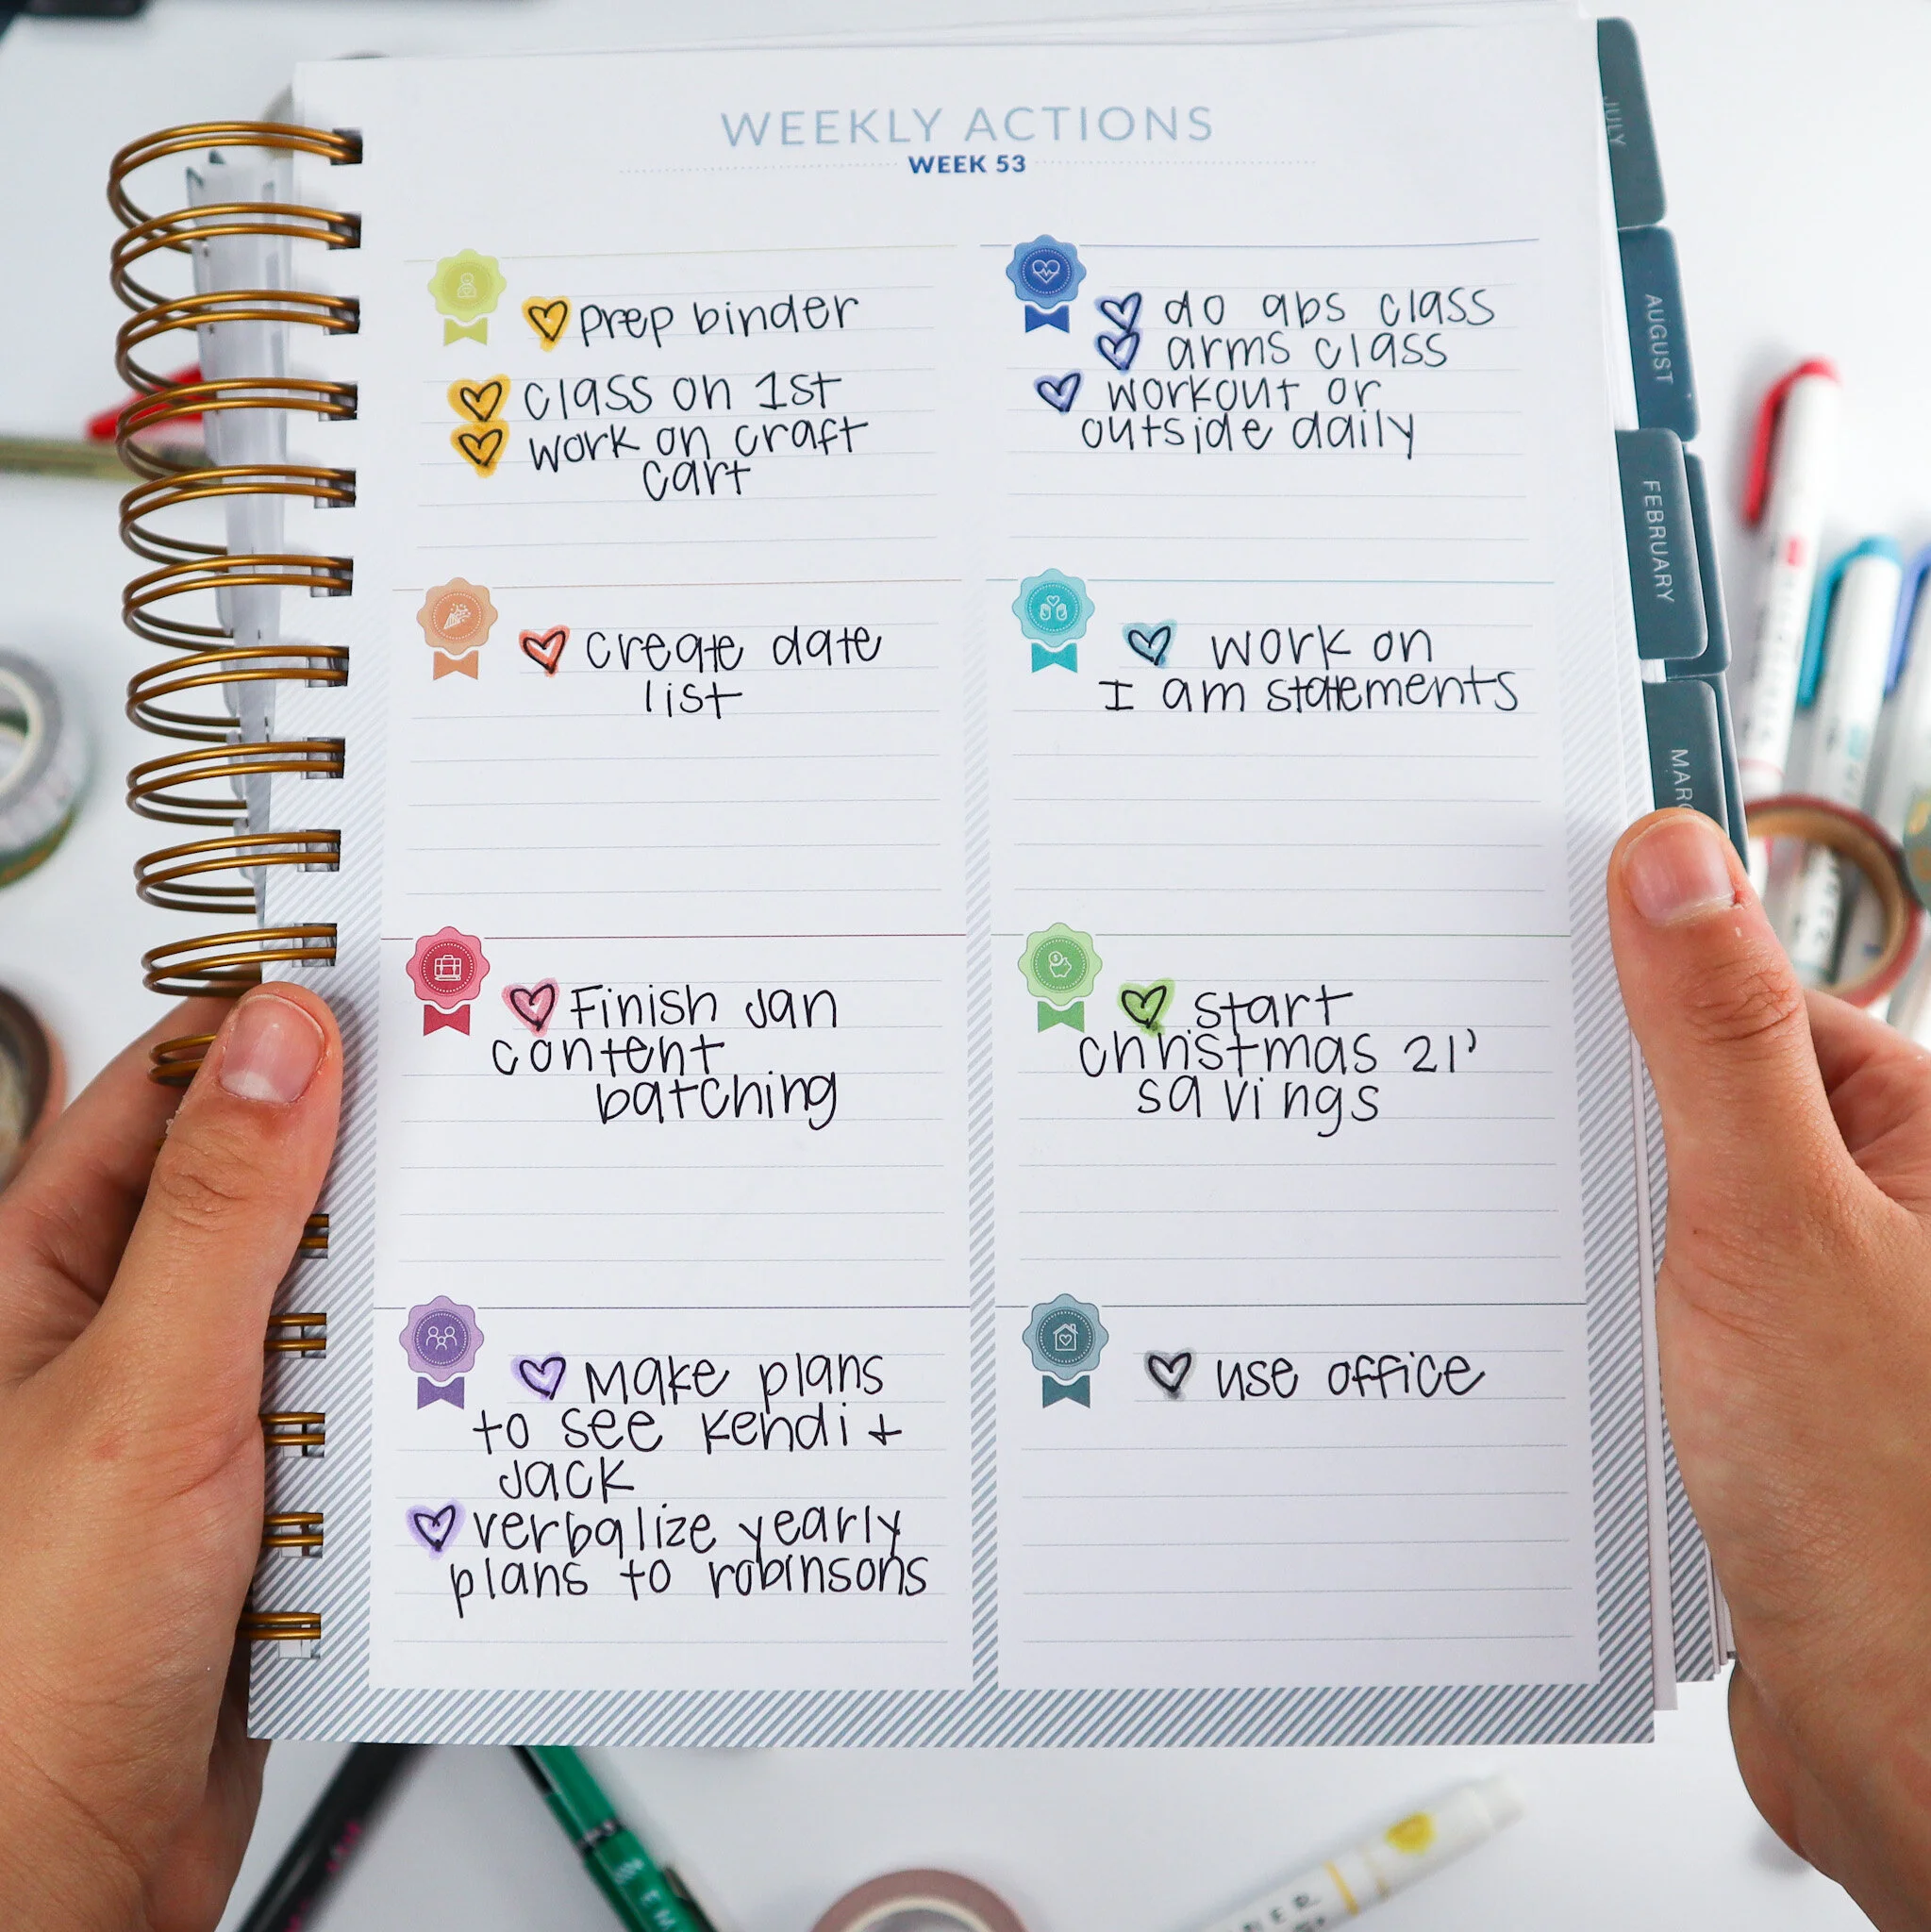 WEEKLY ACTIONS
WEEK 53
prep binder
class on 1st
work on craft
cart
do abs class
arms class
workout or
outside daily
create date
list
work on
I am statements
Finish Jan
content
batching
start
christmas 21'
savings
Make plans
to see Kendi +
Jack
verbalize yearly
plans to robinsons
use office
JULY
AUGUST
FEBRUARY
MARC